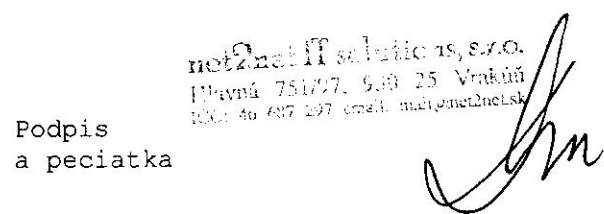 net2net IT solutions, s.r.o.
Hlavná 751/27, 930 25 Vrakúň
IČO: 46 687 297 email: mail@net2net.sk
Podpis
a peciatka